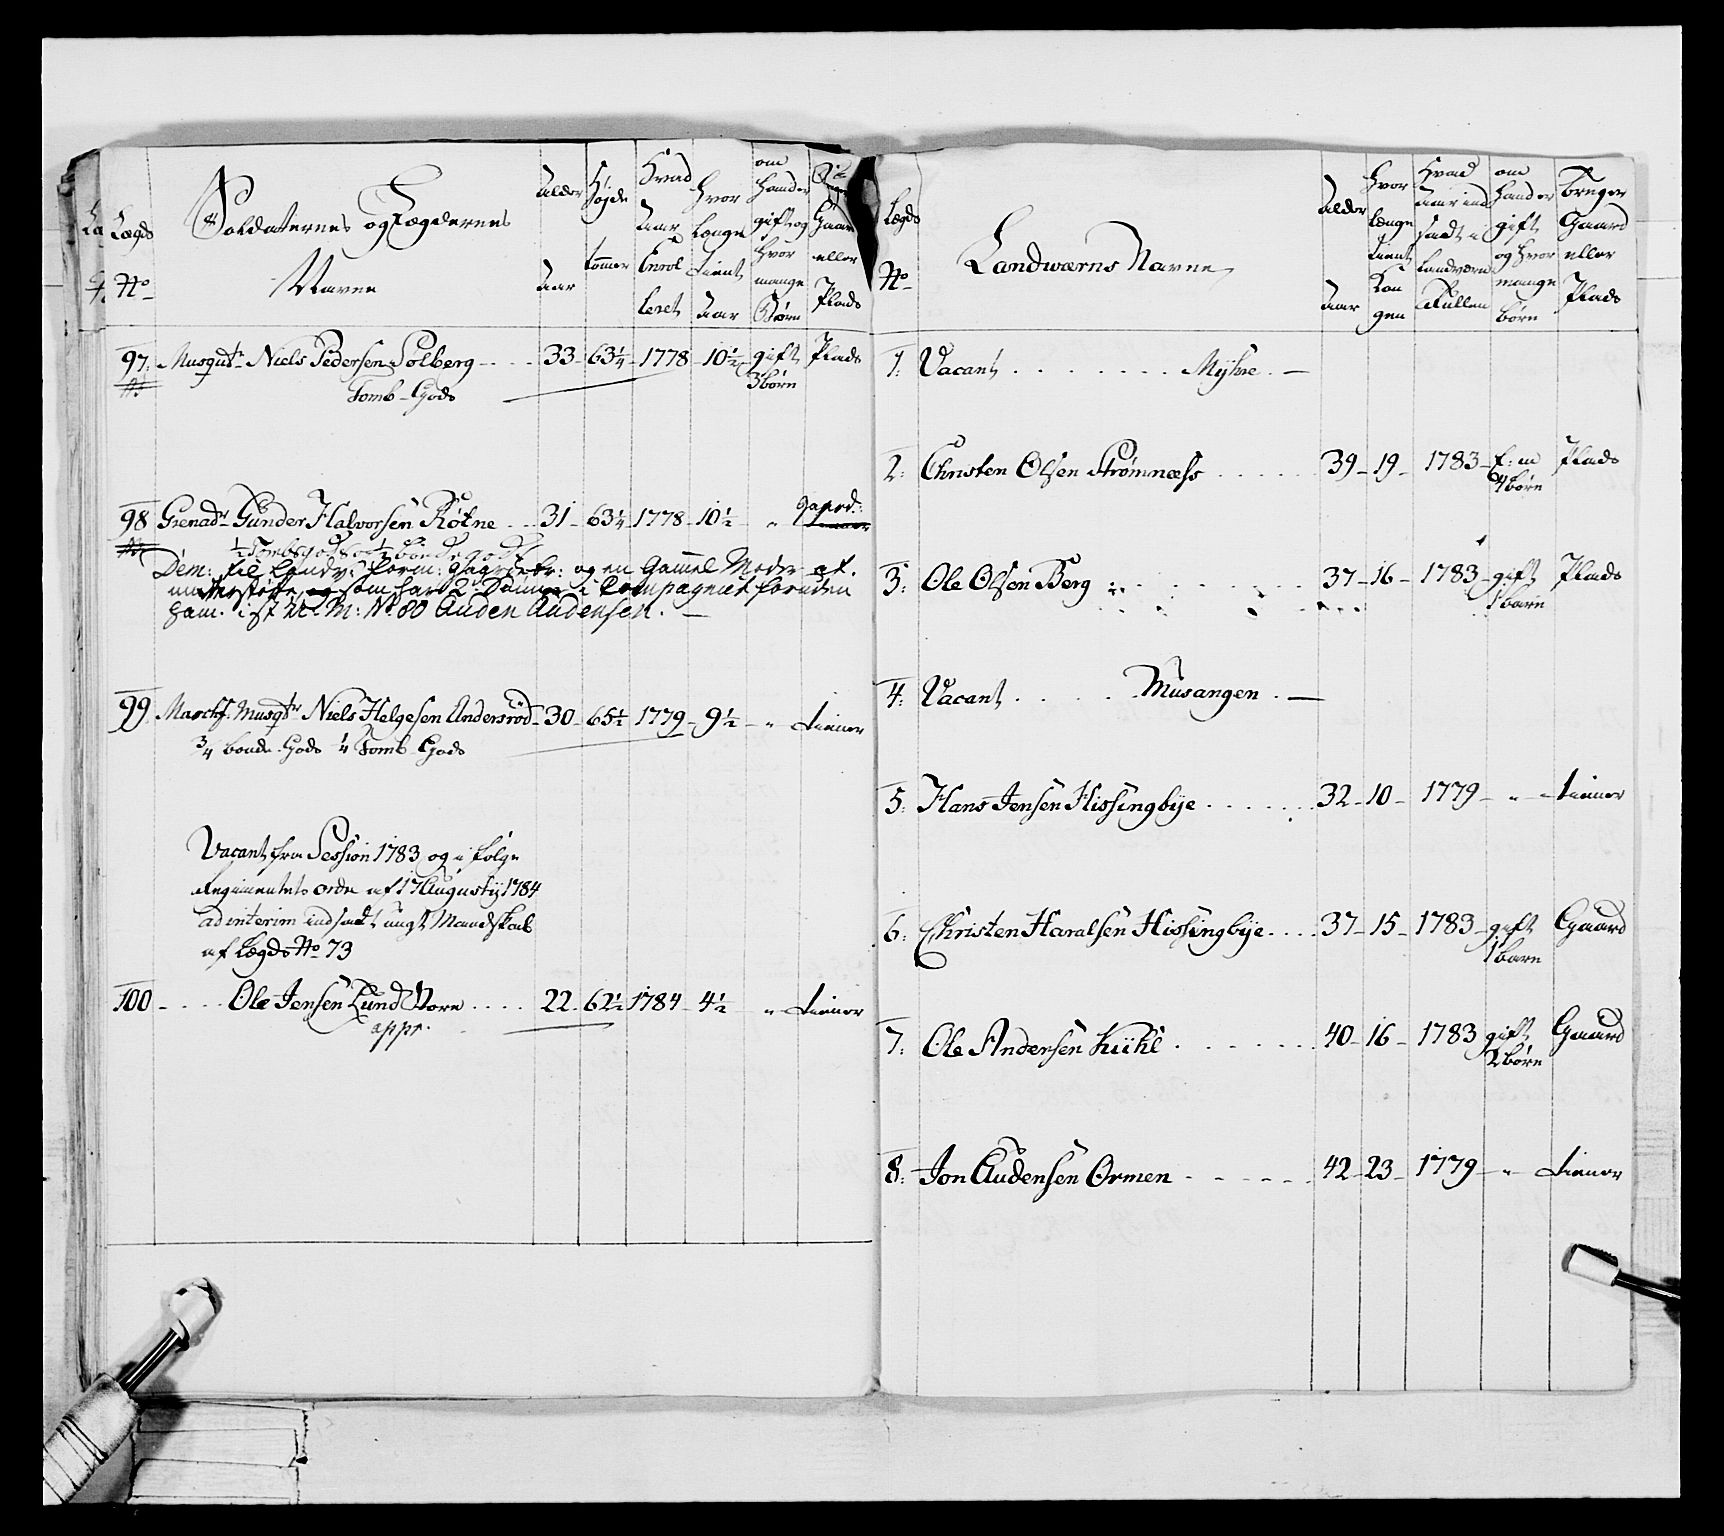 Lægds
No
Soldaternes og Lægdernes
Navne
Alder
Aar
Højde
tommer
Hvad
Aar
Enrol
leret
Hvor
længe
tient
Aar
om
hand er
gift og
hvor
mange
Børn
Gaard
eller
Plads
97. Musqutr Niels Pedersen Solberg 33 63¼ 1778 10½ gift Plads
3 børn
Tomb Gods
98 Grenadr Gunder Halvorsen Rötne 31 63¼ 1778 10½ "
½ Tombs gods og ½ bönde gods
Dem: til Landv: og en Gammel Moder at
understötte, som har 2 Sönner i Compagniet foruden
ham. ist N: M: No 80 Auden Audensen.
99 Musqtr Niels Helgesen Andersröd 30 65½ 1779 9½ " tiener
¾ bonde Gods ¼ Tomb Gods
Vacant fra Session 1783 og i følge
Regimentets ordre af 17 Augustij 1784
ad interim indsadt ungt Mandskab
af Lægds No 73
100 Ole Jensen Lund Vorn 22 62½ 1784 4½ " tiener
appr.
Lægds
No
Landværns Navne
Alder
Aar
Hvor
længe
tient
Kon
gen
Hvad
Aar ind
sadt i
Landværns
Rullen
om
hand er
gift
og hvor
mange
børn
bruger
Gaard
eller
Plads
1: Vacant Myhre
2: Christen Olsen Strömnæss 39 19 1783 E: m Plads
4 børn
3: Ole Olsen Berg 37 16 1783 gift Plads
1 barn
4: Vacant Musangen
5: Hans Jensen Hissingbÿe 32 10 1779 " tiener
6: Christen Haralsen Hissingbÿe 37 15 1783 gift Gaard
1 barn
7: Ole Andersen Kiihl 40 16 1783 gift Gaard
2 børn
8: Jon Audensen Ormen 42 23 1779 " tiener